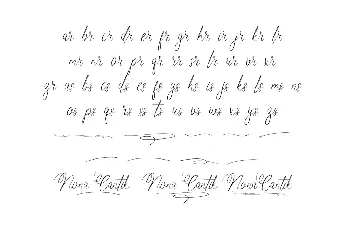 ar br cr dr er fr gr hr ir jr kr lr
mr nr or pr qr rr sr tr ur vr xr
zr as bs cs ds es fs gs hs is js ks ls ms ns
os ps qs rs ss ts us vs ws xs ys zs
Nona Cantik Nona Cantik Nona Cantik